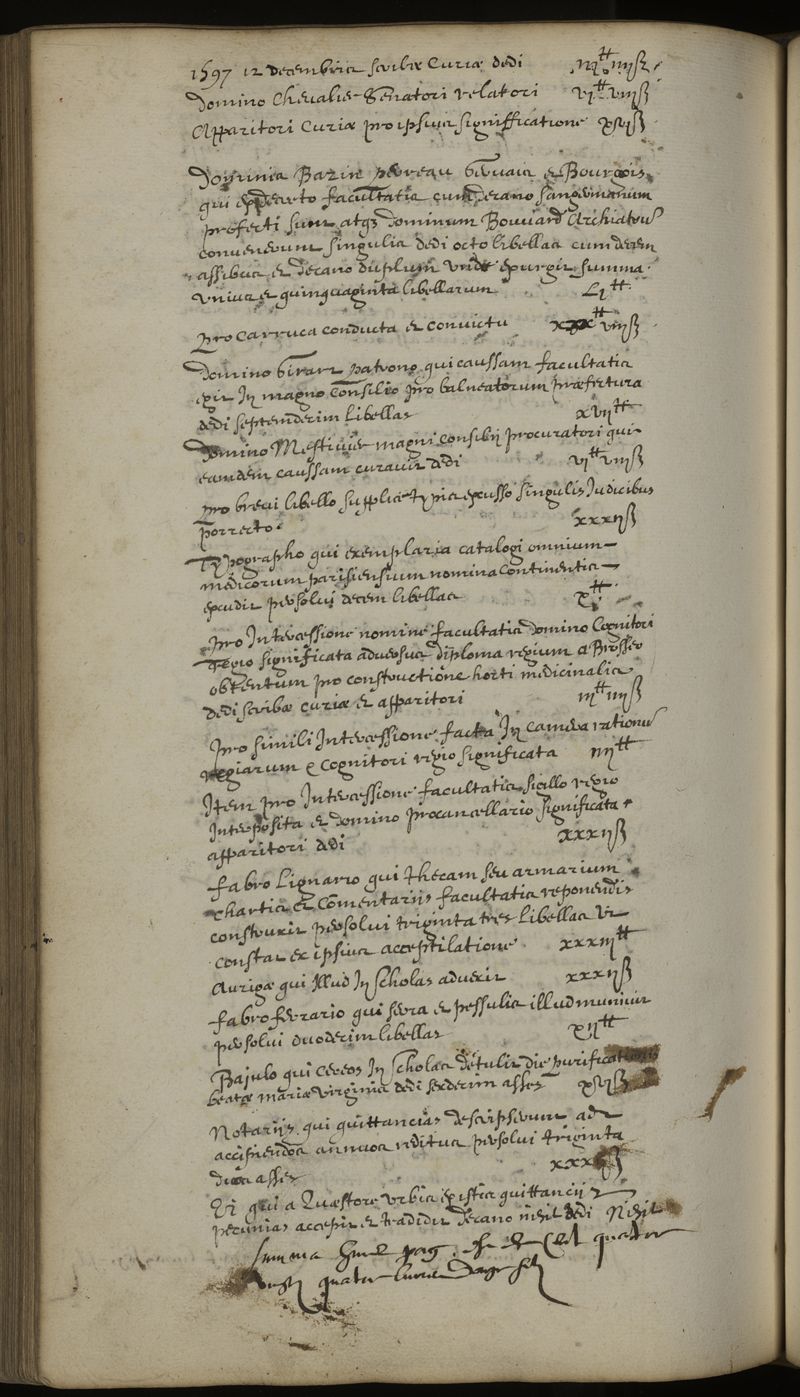 1597 12 decembris scribæ Curiæ dedi iii₶ iiijß
Domino Chevalier Senatori relatori vj₶ viijß
Apparitori Curiæ pro ipsius significatione xvjß
Dominis Bazin perreau Gervais et Bourgois
qui ex decreto facultatis cum decano sangermanum
profecti sunt atq3 dominum Bouvard Archiatrum
convenerunt singulis dedi octo libellas cum decem
assibus et decano duplum unde exurgit summa
unius et quinquaginta libellarum Lj₶
pro Carruca conducta et convictu viijß
Domino Girart patrono qui caussam facultatis
egit In magno Consilio pro balneatorum præfectura
dedi septemdecim Libellas xvij₶
Domino Mestivier magni consilii procuratori qui
eamdem caussam curavit dedi vj₶ viijß
pro brevi libello supplici typis excusso singulis Judicibus
porrecto. xxxijß
Typographo qui exemplaria catalogi omnium
medicorum parisiensium nomina continentis
excudit persolui decem libellas x₶
pro Intercessione nomine facultatis domino Cognitori
Regio significata adversus diploma regium a Brosseo
obtentum pro constructione horti medicinalis
dedi scribæ curiæ et apparitori iij₶ iiijß
pro simili Intercessione facta In Camera rationum
regiarum et Cognitori regio significata iiij₶
Item pro Intercessione facultatis sigillo regio
Interposita et domino procancellario significata
apparitori dedi xxxijß
fabro Lignario qui thecam seu armarium
Chartis et Commentariis facultatis reponendis
construxit persolui triginta tres Libellas ut
constat ex ipsius acceptilatione xxxiij₶
Aurigæ qui Illud In scholas advexit xxxijß
fabro ferrario qui sera et pessulis illud munivit
persolui duodecim libellas xij₶
Bajulo qui cereos In scholas detulit die purificationis
beatæ mariæ virginis dedi sexdecim asses xvjß
Notariis qui quittancias descripserunt ad
accipiendos annuos reditus persolui triginta
duos asses xxxijß
Ei qui a Quæstore urbis ex istis quittanciis
pecunias accepit et tradidit decano nihil dedi Nihil